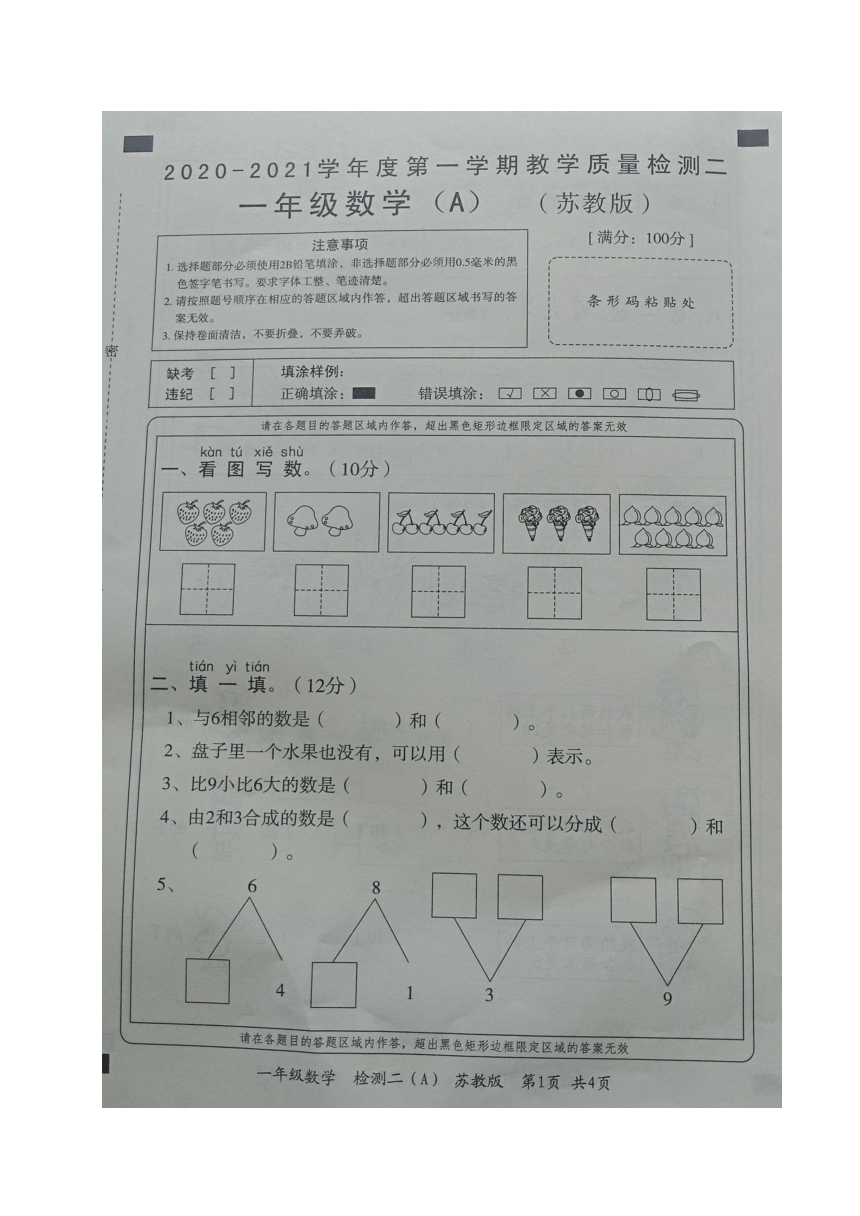 2020-2021学年度第一学期教学质量检测二
一年级数学（A）（苏教版）
注意事项
1. 选择题部分必须使用2B铅笔填涂，非选择题部分必须用0.5毫米的黑
色签字笔书写。要求字体工整、笔迹清楚。
2. 请按照题号顺序在相应的答题区域内作答，超出答题区域书写的答
案无效。
3. 保持卷面清洁，不要折叠，不要弄破。
[ 满分：100分 ]
条形码粘贴处
密
缺考 [ ] 填涂样例：
违纪 [ ] 正确填涂： 错误填涂：
请在各题目的答题区域内作答，超出黑色矩形边框限定区域的答案无效
kàn tú xiě shù
一、看图写数。（10分）
tián yì tián
二、填一填。（12分）
1、与6相邻的数是（ ）和（ ）。
2、盘子里一个水果也没有，可以用（ ）表示。
3、比9小比6大的数是（ ）和（ ）。
4、由2和3合成的数是（ ），这个数还可以分成（ ）和
（ ）。
5、 6 8
4 1 3 9
请在各题目的答题区域内作答，超出黑色矩形边框限定区域的答案无效
一年级数学 检测二（A） 苏教版 第1页 共4页